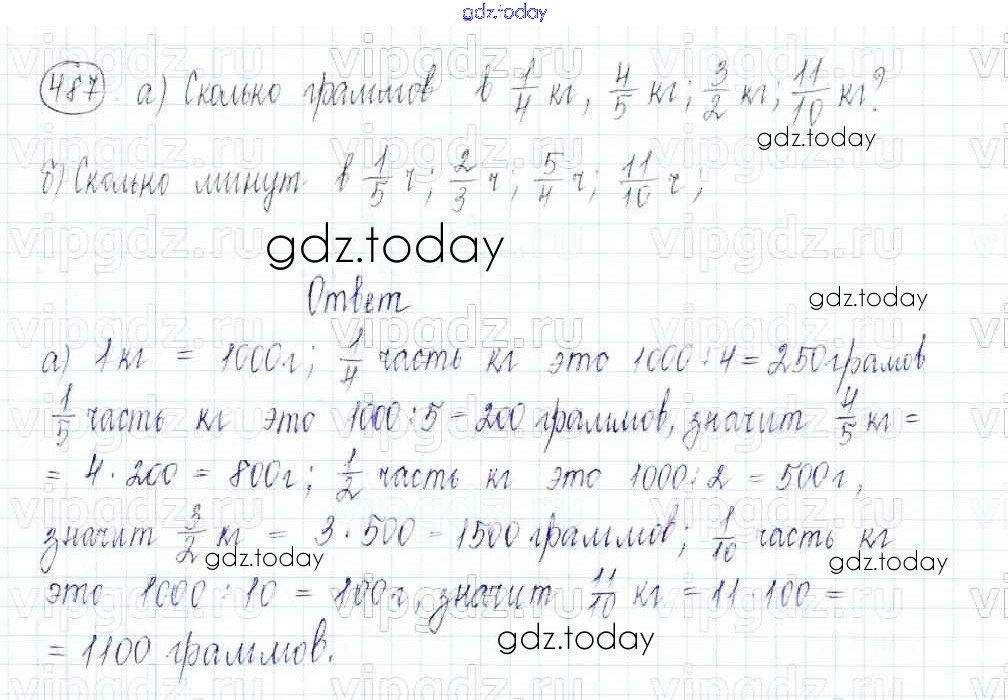 gdz.today
487. а) Сколько граммов в 1/4 кг, 4/5 кг; 3/2 кг; 11/10 кг?
gdz.today
б) Сколько минут в 1/5 ч; 2/3 ч; 5/4 ч; 11/10 ч;
gdz.today
Ответ
gdz.today
а) 1 кг = 1000г; 1/4 часть кг это 1000 : 4 = 250 грамов
1/5 часть кг это 1000 : 5 = 200 граммов, значит 4/5 кг =
= 4 · 200 = 800г; 1/2 часть кг это 1000 : 2 = 500г,
значит 3/2 кг = 3 · 500 = 1500 граммов; 1/10 часть кг
gdz.today gdz.today
это 1000 : 10 = 100г, значит 11/10 кг = 11 · 100 =
gdz.today
= 1100 граммов.